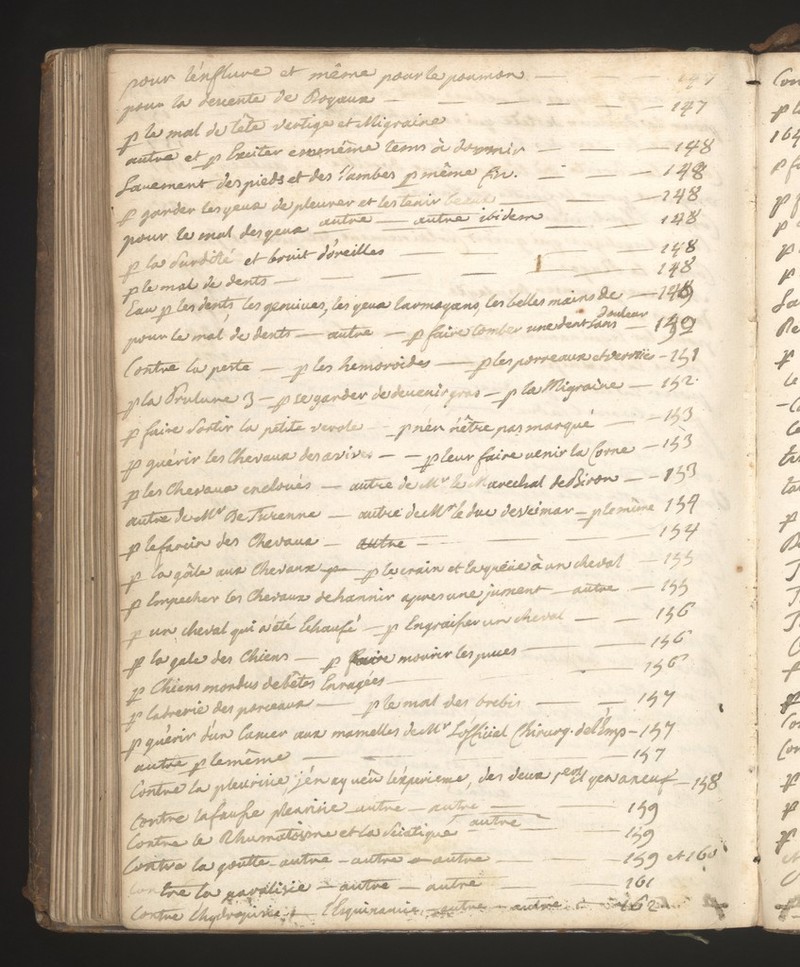 pour l'enflure et même pour le poumon — 147
pour la descente de Boyaux — 147
p le mal de tête vertige et Migraine
autre et p Exciter en même tems à dormir — 148
Lavement des pieds et des Jambes p même fin. — 148
p garder les yeux de pleurer et les tenir beaux — 148
pour le mal des yeux autre — autre ibidem — 148
p la surdité et bruit d'oreilles — 148
p le mal de dents — 148
Eau p les dents, les gencives, les yeux larmoyans, les belles mains &c — 149
pour le mal de dents — autre — p faire tomber une dent sans douleur — 150
Contre la peste — p les hemoroides — p les porreaux et verrues — 151
p la Brulure 3 — p se garder de devenir gras — p la Migraine — 152
p faire sortir la petite verole — p n'en n'être pas marqué — 153
p guérir les Chevaux des avives — p leur faire venir la Corne — 153
p les Chevaux encloués — autre de Mr le Marechal de Biron — 153
autre de Mr De Turenne — autre de Mr le duc de Veimar — p le même 154
p le farcin des Chevaux — autre — 154
p la gâle aux Chevaux — p le crain et la queüe à un cheval — 155
p Empecher les Chevaux de hannir apres une jument — autre — 155
p un cheval qui a été Echaufé — p Engraisser un cheval — 156
p la gale des Chiens — p faire mourir les puces — 156
p Chiens mordus de bêtes Enragées — 156
p ladrerie des porceaux — p le mal des brebis — 157
p guérir d'un Cancer aux mamelles de Mr L'official Chirurg. de l'Emp — 157
autre p le même — 157
Contre la pleurisie, j'en ay veu l'experience, des deux — 158
Contre la fausse pleurisie autre — autre — 159
Contre le Rhumatisme et la Sciatique autre — 159
Contre la goutte — autre — autre — autre — 159 et 160
Contre la paralisie — autre — autre — 161
Contre l'hydropisie — l'Esquinancie, autre — autre — 162